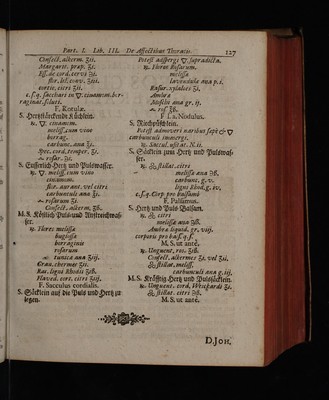 Part. I. Lib. III. De Affectibus Thoracis. 127
Confect. alkerm. ʒii.
Margarit. præp. ʒi.
Ess. de cord. cervi ʒi.
cortic. citri ʒii.
c. s. q. sacchari in ▽. cinamom. bor-
raginat. soluti.
F. Rotulæ.
S. Hertzstärckende Küchlein.
℞. ▽. cinamom.
meliss. cum vino
borrag.
carbunc. ana ʒi.
Spec. cord. temper. ʒi.
rosar. ʒß.
S. Eusserlich Hertz und Pulswasser.
℞. ▽. meliss. cum vino
cinamom.
flor. aurant. vel citri
carbunculi ana ʒi.
rosarum ʒi.
Confect. alkerm. ʒß.
M. S. Köstlich Puls und Anstreichwas-
ser.
℞. Flores melissæ
buglossæ
borraginis
rosarum
tunicæ ana ʒiij.
Gran. chermes ʒii.
Ras. ligni Rhodii ʒß.
Flaved. cort. citri ʒiij.
F. Sacculus cordialis.
S. Säcklein auf die Puls und Hertz zu
legen.
Potest adspergi ▽. supradicta.
℞. Horum florum.
melissæ
lavendulæ ana p. i.
Rasur. xylaloes ʒi.
Ambræ
Moschi ana gr. ij.
ros. ʒß.
F. l. a. Nodulus.
S. Riechpöschlein.
Potest admoveri naribus sæpe & ▽
carbunculi immergi.
℞. Saccul. usitat. N. ii.
S. Säcklein zum Hertz und Pulswas-
ser.
stillat. citri
melissæ ana ʒß.
carbunc. g. v.
ligni Rhod. g. iv.
c. s. q. Corp. pro balsamo
F. Balsamum.
S. Hertz und Puls Balsam.
℞. citri
melissæ ana ʒß.
Ambræ liquid. gr. viij.
corporis pro bals. q. s.
M. S. ut antè.
℞. Unguent. ros. ʒiß.
Confect. alkermes ʒi. vel ʒii.
stillat. meliss.
carbunculi ana g. iij.
M. S. Kräfftig Hertz und Pulssälblein.
℞. Unguent. cord. Weickardi ʒi.
stillat. citri ʒß.
M. S. ut antè.
D. JOH.